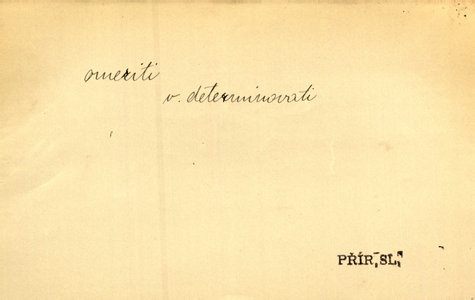 omeziti
v. determinovati
PŘÍR. SL.